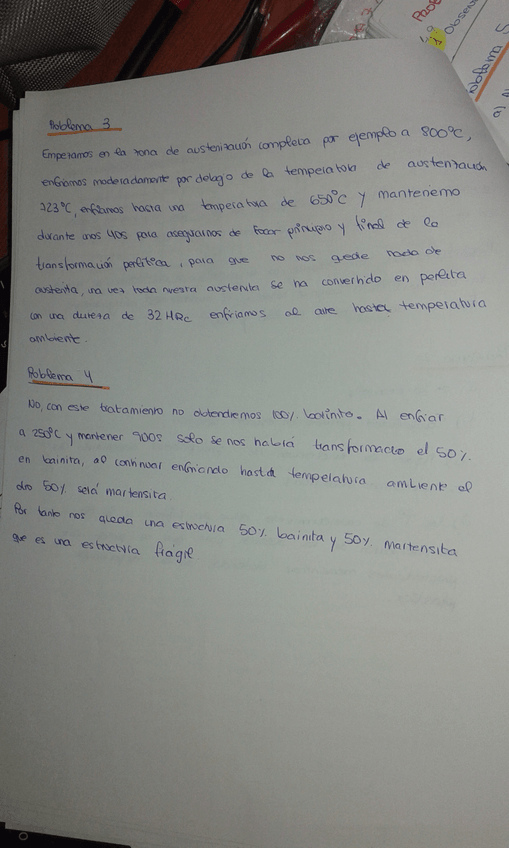 Prob
Observ
Problema 5
a)
Problema 3
Empezamos en la zona de austenización completa por ejemplo a 800ºC,
enfriamos moderadamente por debajo de la temperatura de austenización
723ºC, enfriamos hasta una temperatura de 650ºC y mantenemo
durante unos 40s para asegurarnos de tocar principio y final de la
transformación perlítica, para que no nos quede nada de
austenita, una vez toda nuestra austenita se ha convertido en perlita
con una dureza de 32 HRc enfriamos al aire hasta temperatura
ambiente.
Problema 4
No, con este tratamiento no obtendremos 100% bainita. Al enfriar
a 250ºC y mantener 900s solo se nos habrá transformado el 50%
en bainita, al continuar enfriando hasta temperatura ambiente el
otro 50% será martensita
Por tanto nos queda una estructura 50% bainita y 50% martensita
que es una estructura frágil